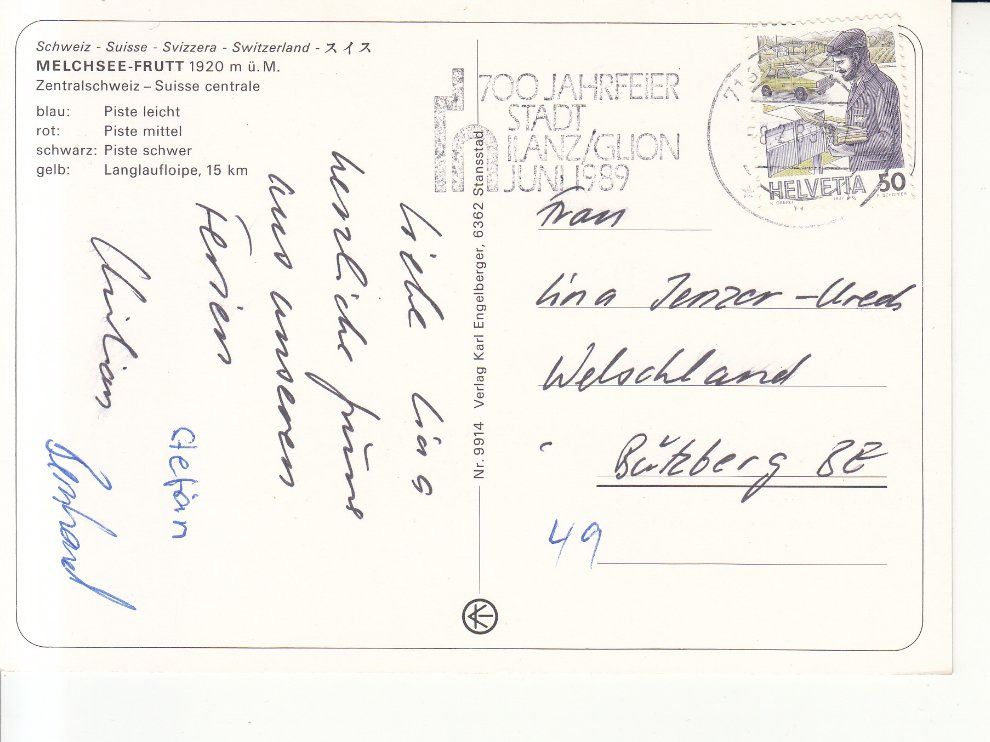 Schweiz - Suisse - Svizzera - Switzerland - スイス
MELCHSEE-FRUTT 1920 m ü. M.
Zentralschweiz – Suisse centrale
blau: Piste leicht
rot: Piste mittel
schwarz: Piste schwer
gelb: Langlaufloipe, 15 km
700 JAHRFEIER
STADT
ILANZ/GLION
JUNI 1989
HELVETIA 50
Nr. 9914 Verlag Karl Engelberger, 6362 Stansstad
Liebe Lina
herzliche Grüsse
aus unseren
Ferien
Stefan
Frau
Lina Jenzer-Urech
Welschland
Bützberg BE
49